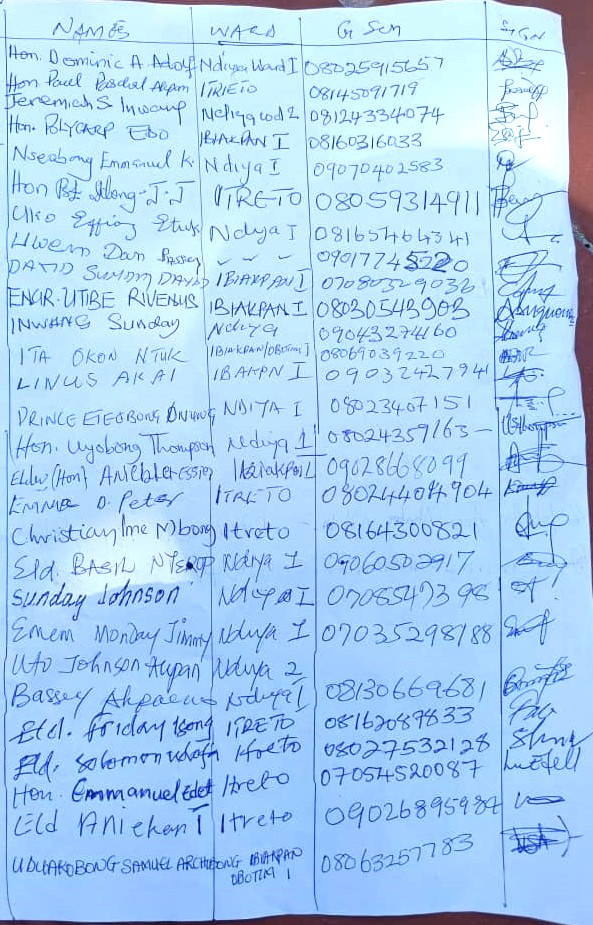 NAMES WARD G Sem SIGN
Hon. Dominic A Adolf Ndiya Ward I 08025915657
Hon Paul Paschal Akpan ITRETO 08145091719
Jeremiah S Inwang Ndiya wd 2 08124334074
Hon. POLYCARP EDO IBIAKPAN I 08160316033
Nseabong Emmanuel K. Ndiya I 09070402583
Hon Pst. J.J ITRETO 08059314911
Uko Effiong Etuk Ndiya I 08165464341
Uwem Dan Bassey ✓ ✓ ✓ 09017745220
DAVID SUNDAY DAVID IBIAKPAN I 07080329036
ENGR. UTIBE RIVENUS IBIAKPAN I 08030543903
INWANG Sunday Ndiya 09043274160
ITA OKON NTUK IBIAKPAN/OBOTIM I 08069039220
LINUS AKAI IBAKPN I 09032427941
PRINCE ETEOBONG NDIYA I 08023407151
Hon. Uyobong Thompson Ndiya 1 08024359163
Elder (Hon) 09028668099
EMMA D. Peter ITRETO 08024404904
Christian Ime Mbong Itreto 08164300821
Eld. BASIL Ndiya I 09060502917
Sunday Johnson Ndiya I 0708547398
Emem Monday Jimmy Nduya I 07035298188
Uto Johnson Akpan Nduya 2
Bassey Ndiya 1 08130669681
Eld. Friday Isong ITRETO 08162089833
Eld. Solomon Itreto 08027532128
Hon. Emmanuel Edet Itreto 07054520087
Eld Aniekan I Itreto 09026895987
UDUAKOBONG SAMUEL ARCHIBONG IBIAKPAN 08063257783
OBOTIM 1